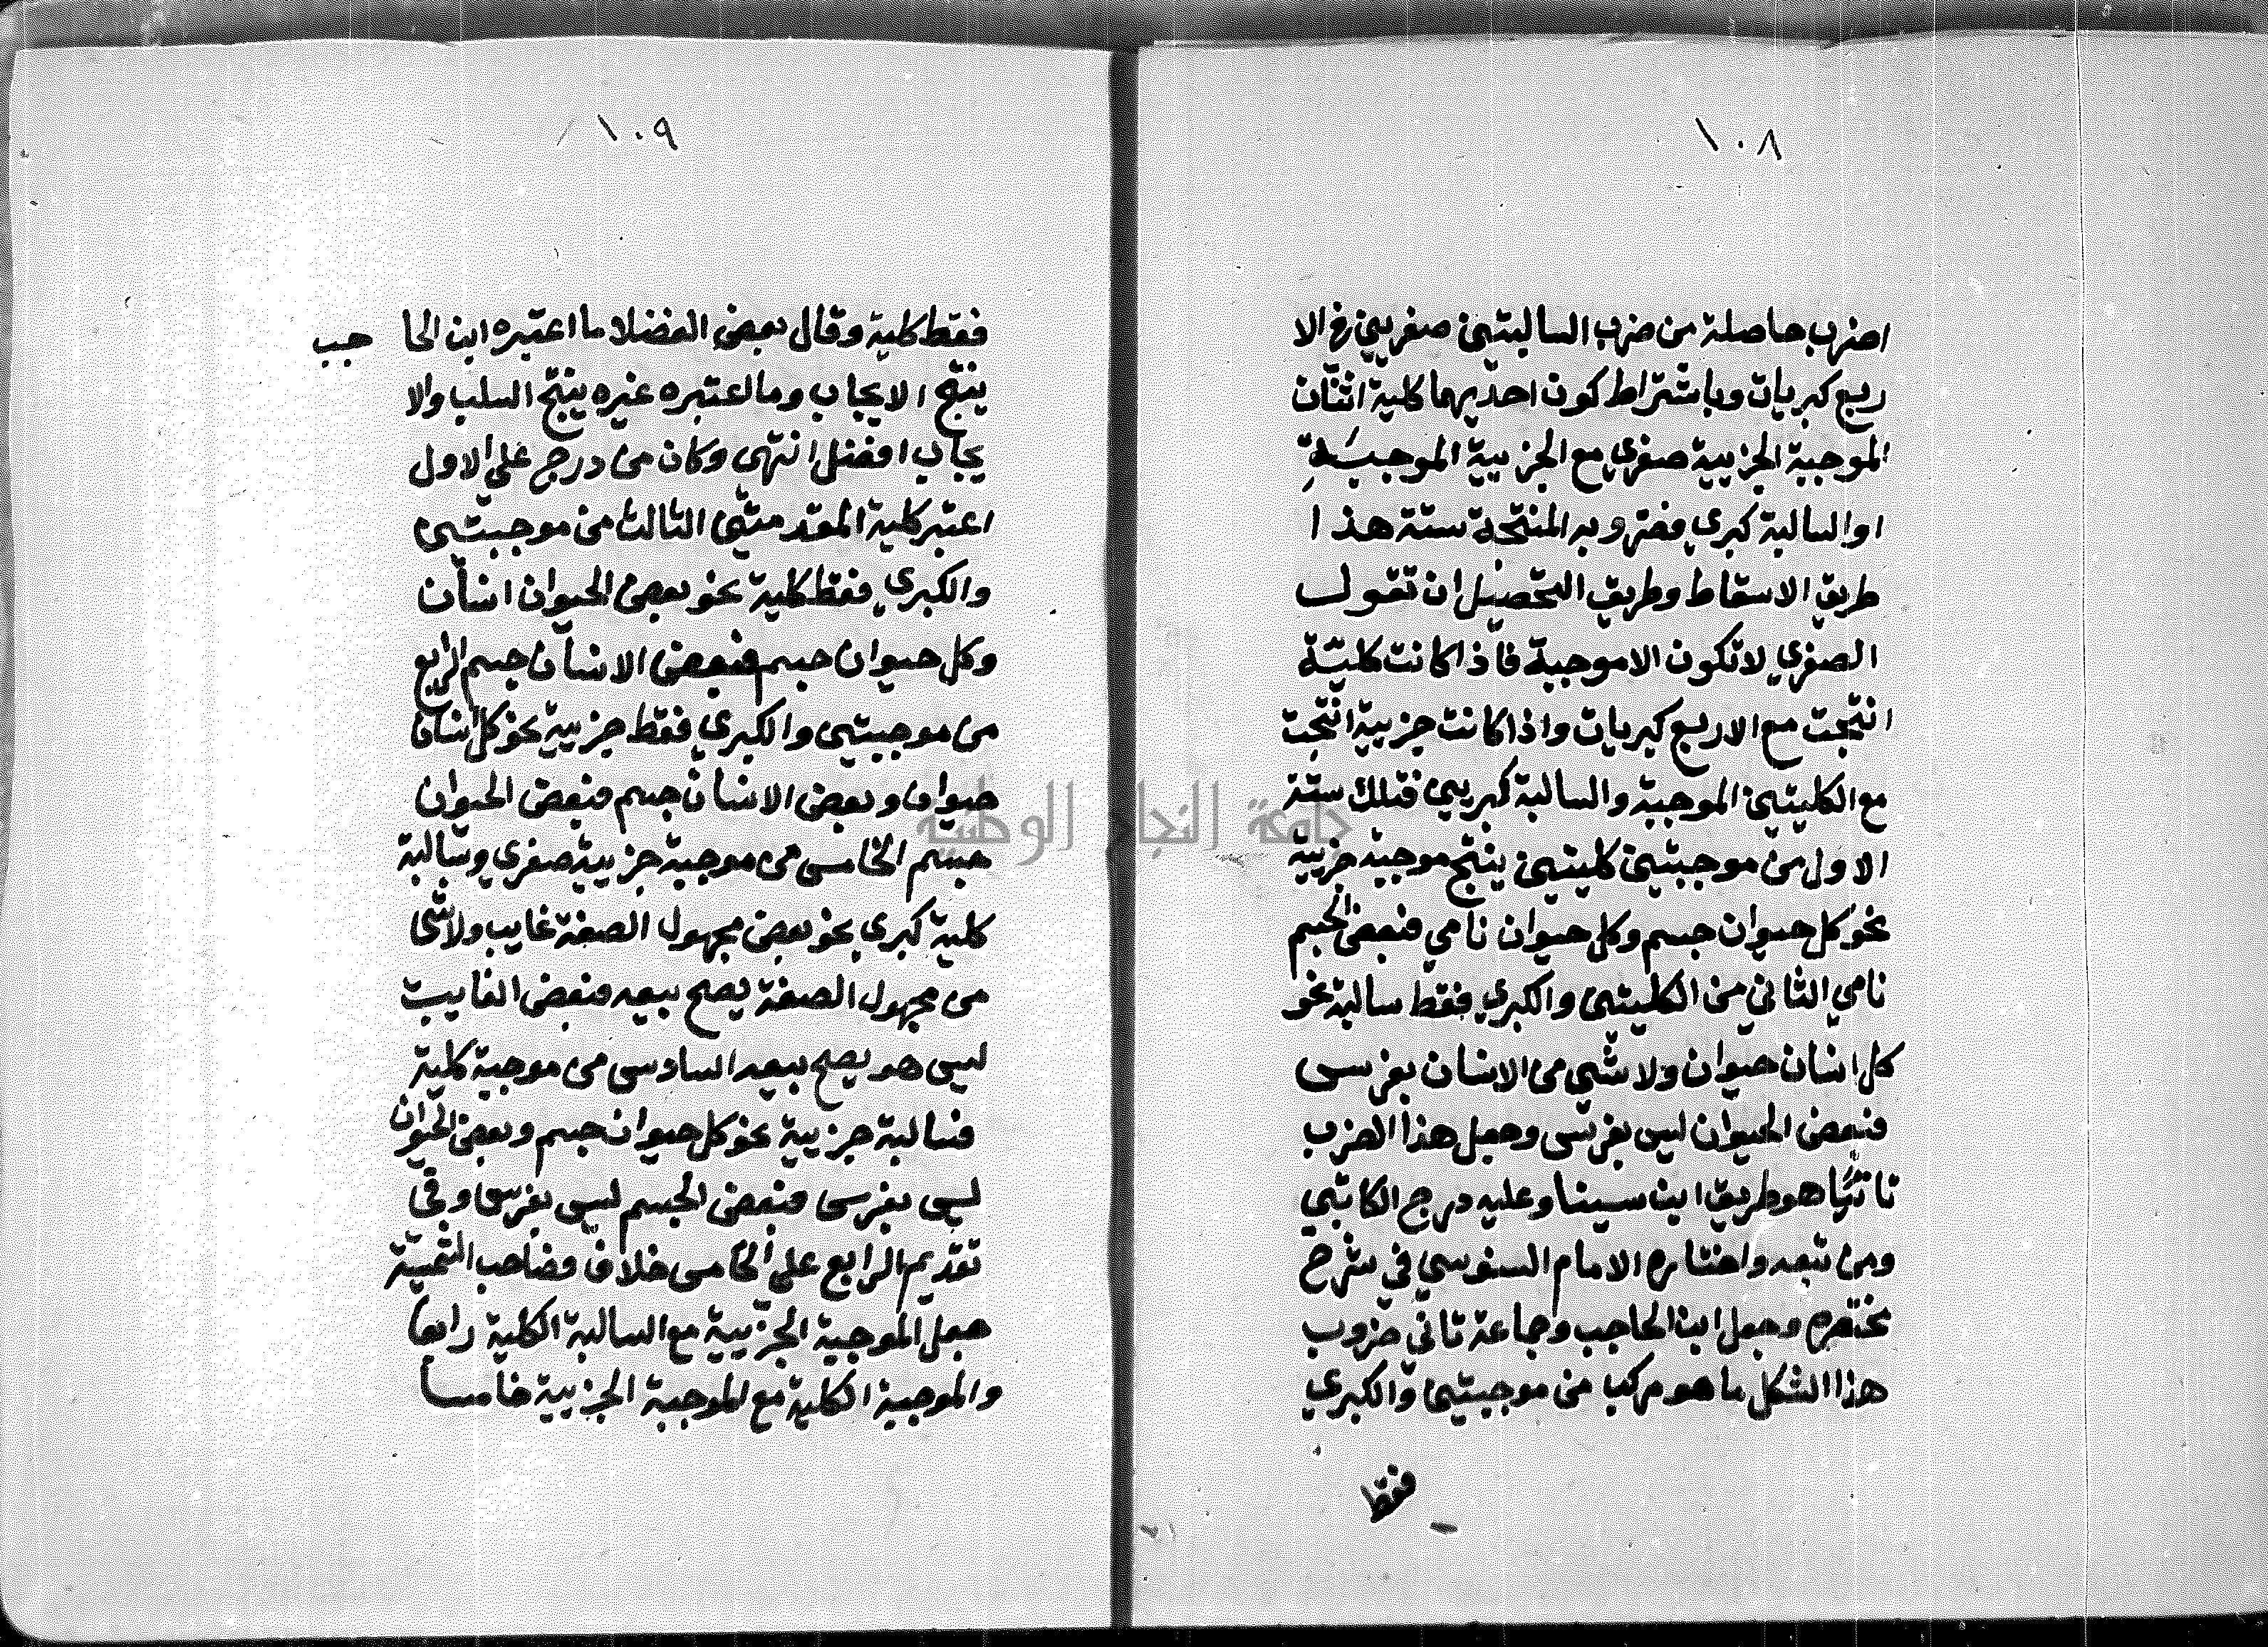 ١٠٨
اضرب حاصلة من ضرب السالبتين صغريين في الا
ربع كبريات وباشتراط كون احديهما كلية اثنان
الموجبة الجزيية صغري مع الجزيية الموجبة
او السالبة كبري فضروبه المنتجة ستة هذا
طريق الاسقاط وطريق التحصيل ان تقول
الصغري لا تكون الا موجبة فاذا كانت كلية
انتجت مع الاربع كبريات واذا كانت جزيية انتجت
مع الكليتين الموجبة والسالبة كبريين فتلك ستة
الاول من موجبتين كليتين ينتج موجبة جزيية
نحو كل حيوان جسم وكل حيوان نامي فبعض الجسم
نامي الثاني من الكليتين والكبري فقط سالبة نحو
كل انسان حيوان ولا شي من الانسان بفرس
فبعض الحيوان ليس بفرس وجعل هذا الضرب
ثانيا هو طريق ابن سينا وعليه درج الكاتبي
ومن تبعه واختاره الامام السنوسي في شرح
مختصره وجعل ابن الحاجب وجماعة ثاني ضروب
هذا الشكل ما هو مركب من موجبتين والكبري
فقط
١٠٩
فقط كلية وقال بعض الفضلا ما اعتبره ابن الحا جب
ينتج الايجاب وما اعتبره غيره ينتج السلب والا
يجاب افضل انتهي وكان من درج علي الاول
اعتبر كلية المقدمتين الثالث من موجبتين
والكبري فقط كلية نحو بعض الحيوان انسان
وكل حيوان جسم فبعض الانسان جسم الرابع
من موجبتين والكبري فقط جزيية نحو كل انسان
حيوان وبعض الانسان جسم فبعض الحيوان
جسم الخامس من موجبة جزيية صغري وسالبة
كلية كبري نحو بعض مجهول الصفة غايب ولا شي
من مجهول الصفة يصح بيعه فبعض الغايب
ليس هو يصح بيعه السادس من موجبة كلية
فسالبة جزيية نحو كل حيوان جسم وبعض الحيوان
ليس بفرس فبعض الجسم ليس بفرس وفي
تقديم الرابع علي الخامس خلاف فصاحب الشمسية
جعل الموجبة الجزيية مع السالبة الكلية رابعا
والموجبة الكلية مع الموجبة الجزيية خامسا
جامعة النجاح الوطنية